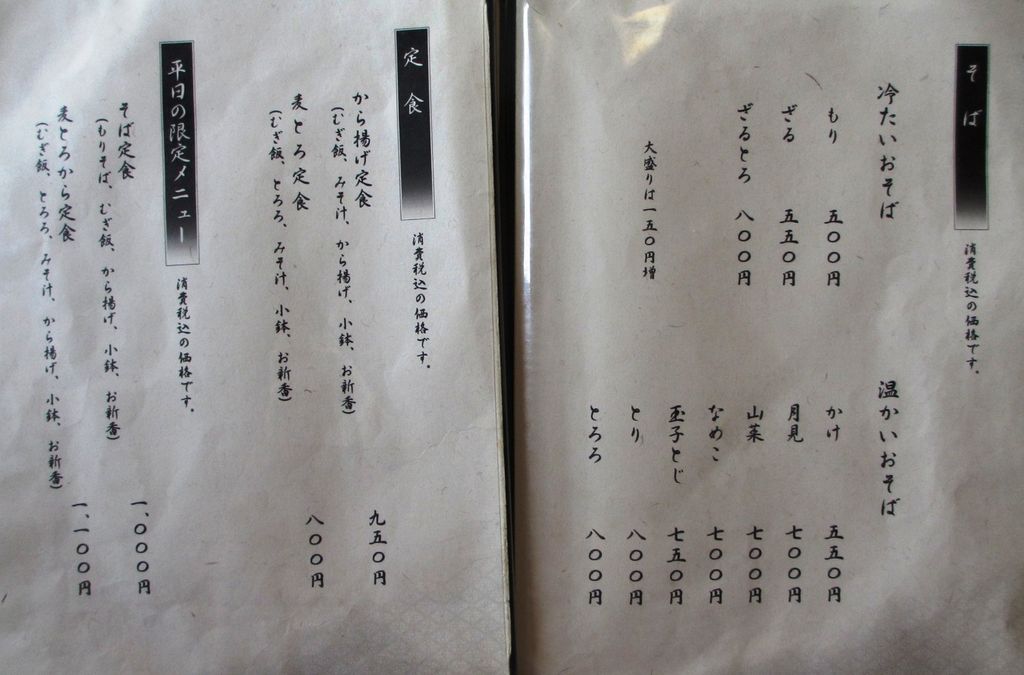 そば
消費税込の価格です。
冷たいおそば
もり 五〇〇円
ざる 五五〇円
ざるとろ 八〇〇円
大盛りは一五〇円増
温かいおそば
かけ 五五〇円
月見 七〇〇円
山菜 七〇〇円
なめこ 七〇〇円
玉子とじ 七五〇円
とり 八〇〇円
とろろ 八〇〇円
定食
消費税込の価格です。
から揚げ定食 九五〇円
（むぎ飯、みそ汁、から揚げ、小鉢、お新香）
麦とろ定食 八〇〇円
（むぎ飯、とろろ、みそ汁、小鉢、お新香）
平日の限定メニュー
消費税込の価格です。
そば定食 一、〇〇〇円
（もりそば、むぎ飯、から揚げ、小鉢、お新香）
麦とろから定食 一、一〇〇円
（むぎ飯、とろろ、みそ汁、から揚げ、小鉢、お新香）